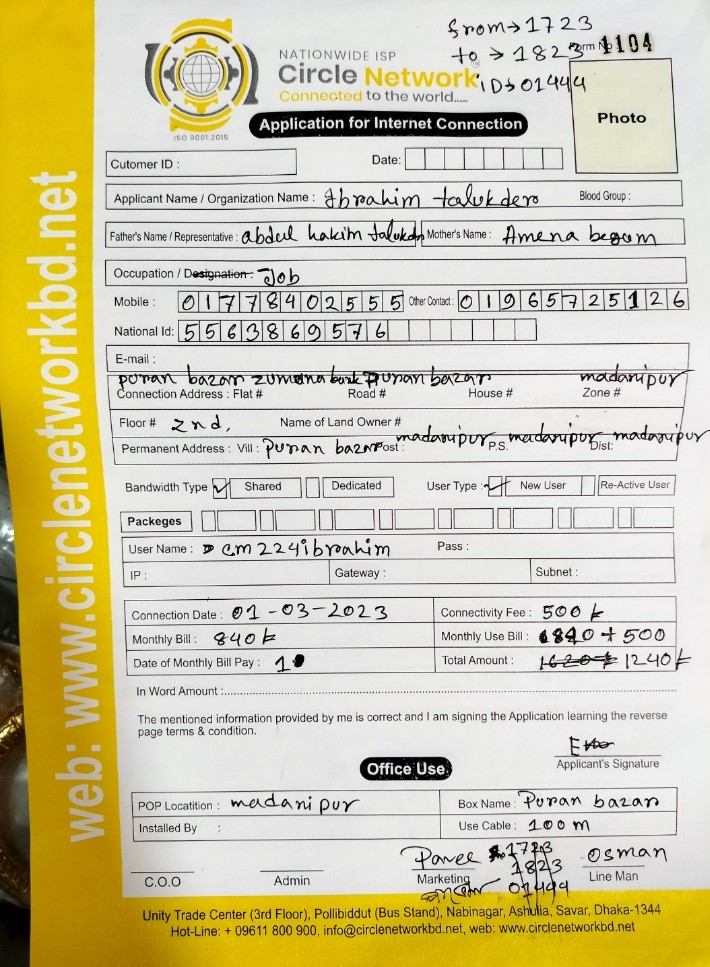 from → 1723
to → 1823
Form No 1104
ID → 01444
NATIONWIDE ISP
Circle Network
Connected to the world.....
ISO 9001:2015
Application for Internet Connection
Photo
Cutomer ID :
Date:
Applicant Name / Organization Name : Ibrahim talukder Blood Group :
Father's Name / Representative : abdul hakim talukdr Mother's Name : Amena begum
Occupation / Designation : Job
Mobile : 01778402555 Other Contact : 01965725126
National Id: 5563869576
E-mail :
puran bazar zumana bank puran bazar madaripur
Connection Address : Flat # Road # House # Zone #
Floor # 2nd, Name of Land Owner #
Permanent Address : Vill : Puran bazar Post : madaripur P.S. madaripur Dist: madaripur
Bandwidth Type Shared Dedicated User Type : New User Re-Active User
Packeges
User Name : cm224ibrahim Pass :
IP : Gateway : Subnet :
Connection Date : 01-03-2023 Connectivity Fee : 500
Monthly Bill : 840 Monthly Use Bill : 840 + 500
Date of Monthly Bill Pay : 1 Total Amount : 1240
In Word Amount :
The mentioned information provided by me is correct and I am signing the Application learning the reverse
page terms & condition.
Applicant's Signature
Office Use
POP Locatition : madaripur Box Name : Puran bazar
Installed By : Use Cable : 100 m
Parvee 1723 Osman
1823
01444
C.O.O Admin Marketing Line Man
Unity Trade Center (3rd Floor), Pollibiddut (Bus Stand), Nabinagar, Ashulia, Savar, Dhaka-1344
Hot-Line: + 09611 800 900, info@circlenetworkbd.net, web: www.circlenetworkbd.net
web: www.circlenetworkbd.net